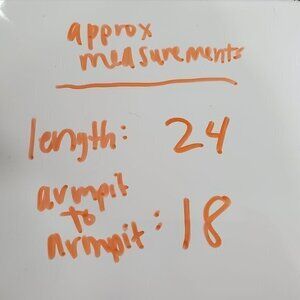 approx
measurements
length: 24
armpit
to
armpit: 18